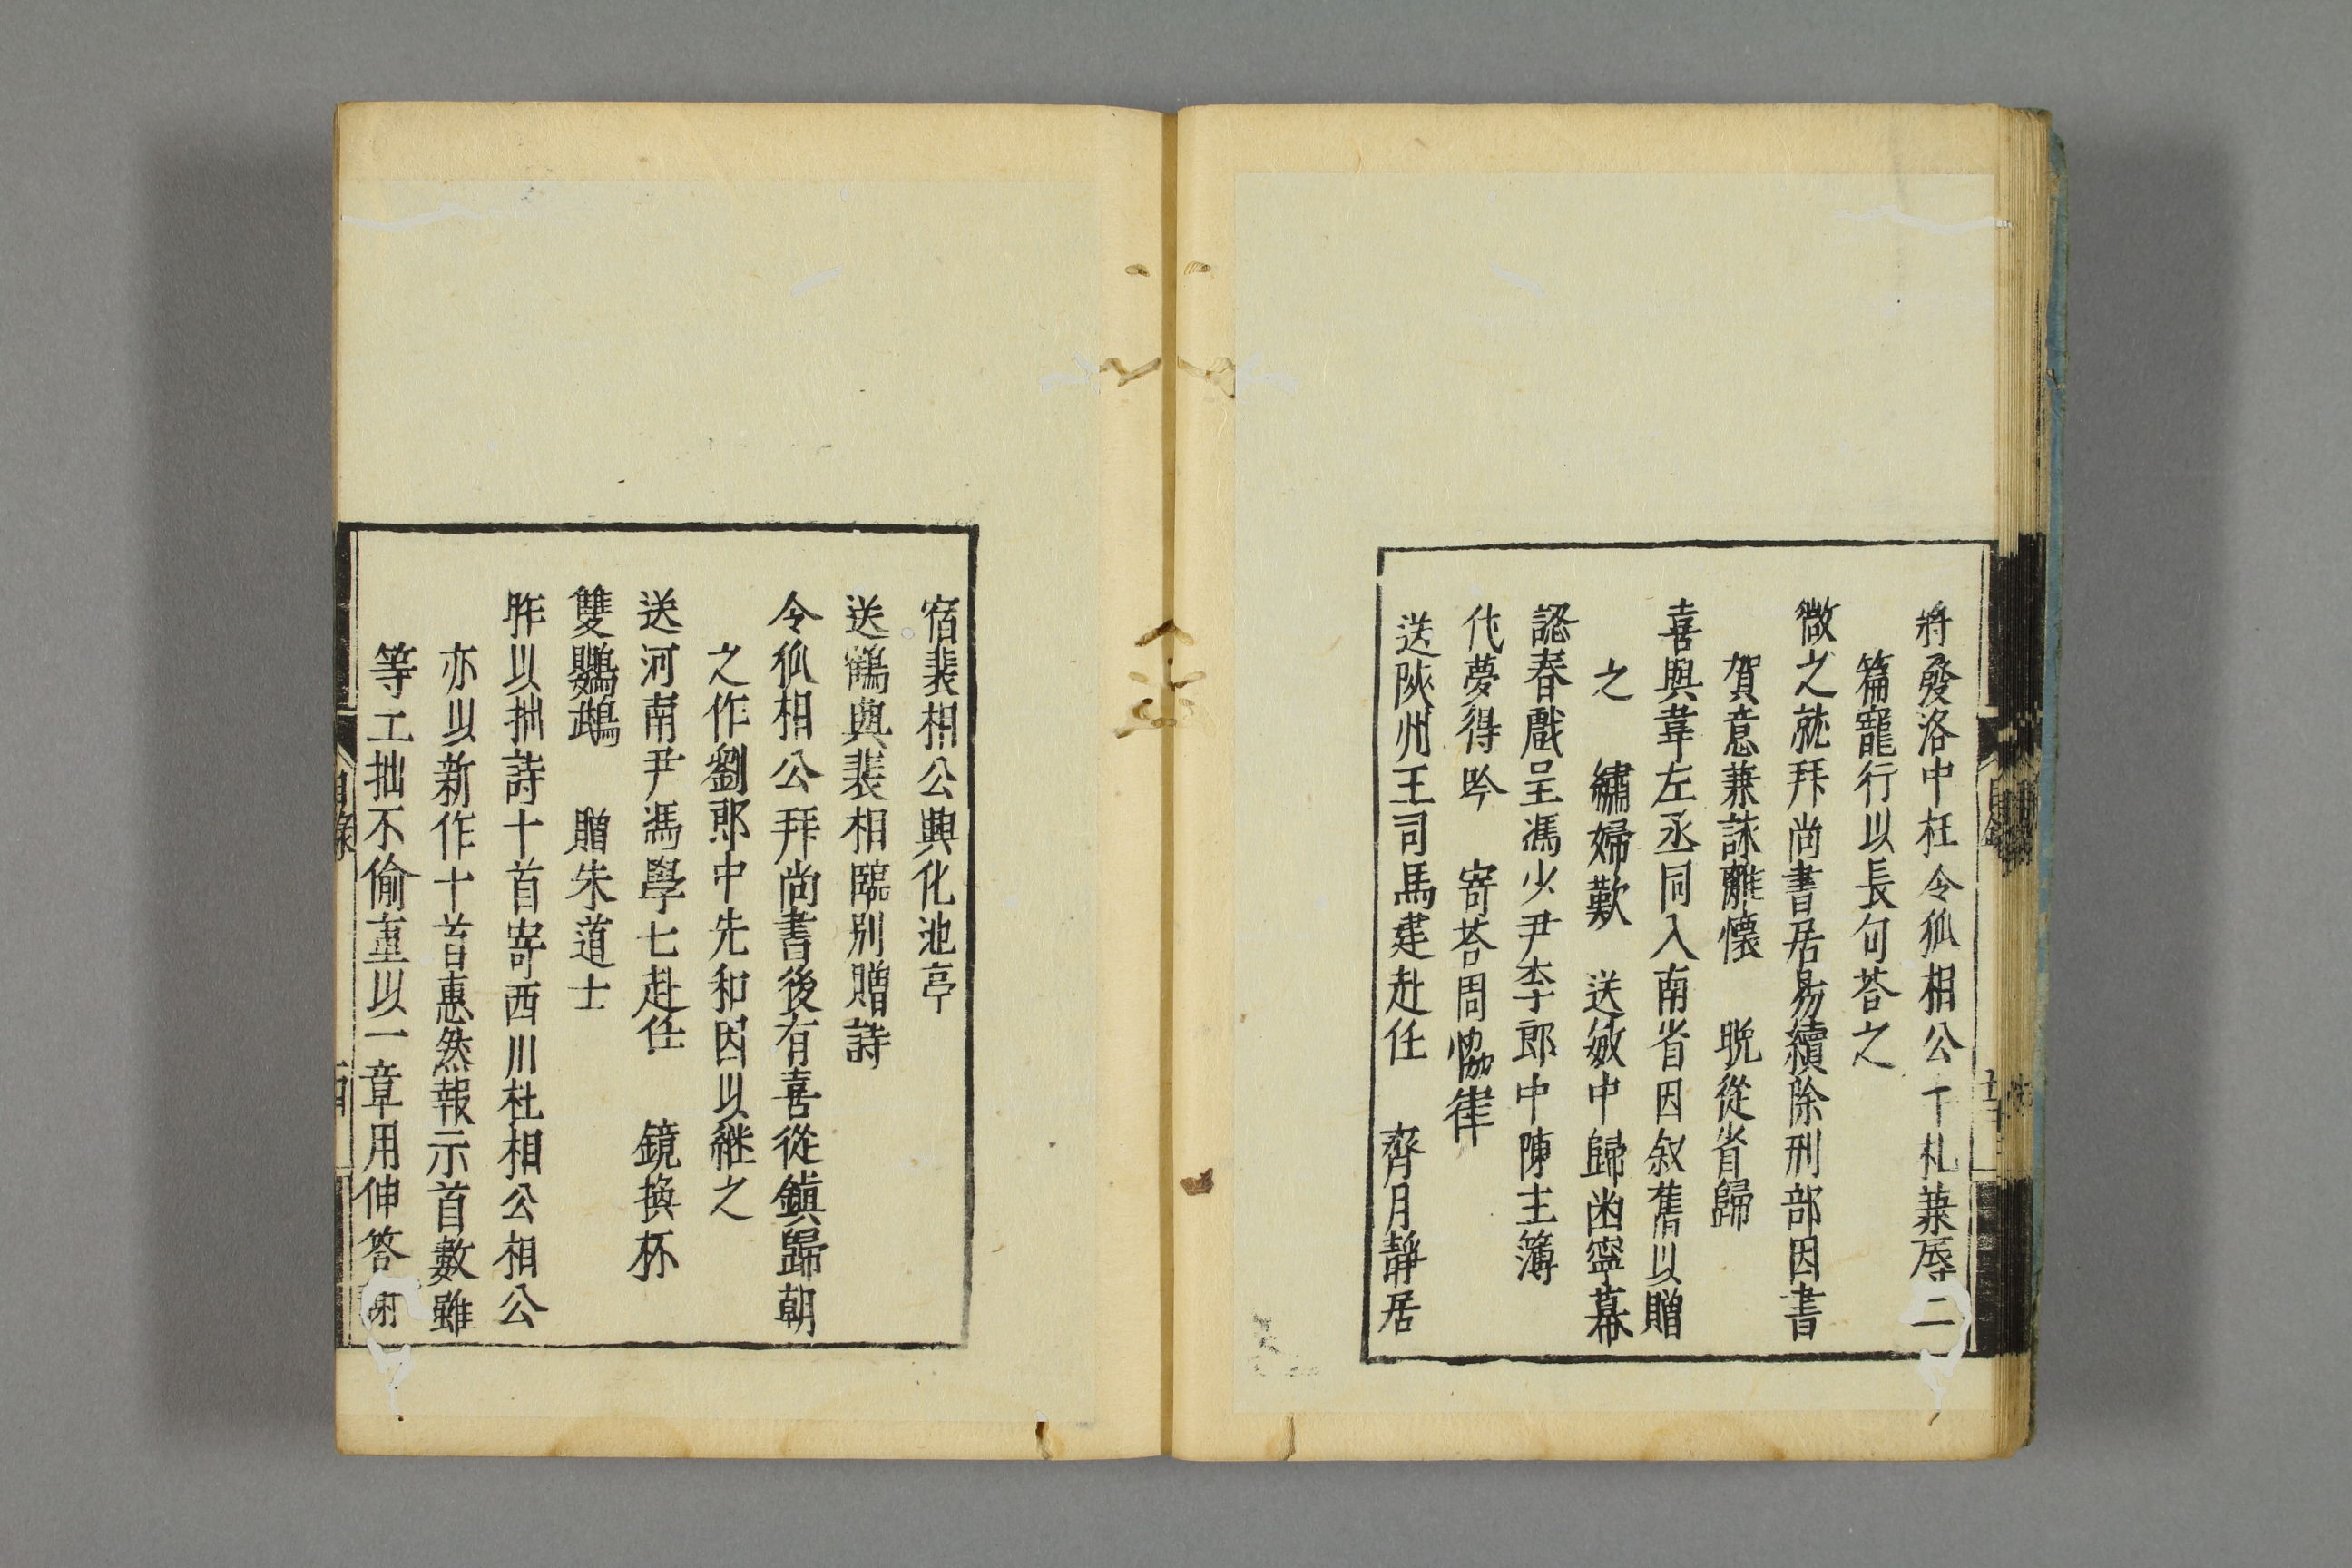 將發洛中枉令狐相公手札兼辱二
篇寵行以長句荅之
微之就拜尚書居易續除刑部因書
賀意兼詠離懷　晚從省歸
喜與韋左丞同入南省因叙舊以贈
之　繡婦歎　送敏中歸豳寧幕
認春戲呈馮少尹李郎中陳主簿
代夢得吟　寄荅周協律
送陜州王司馬建赴任　齊月靜居
宿裴相公興化池亭
送鶴與裴相臨別贈詩
令狐相公拜尚書後有喜從鎮歸朝
之作劉郎中先和因以継之
送河南尹馮學士赴任　鏡換杯
雙鸚鵡　贈朱道士
昨以拙詩十首寄西川杜相公相公
亦以新作十首惠然報示首數雖
等工拙不倫重以一章用伸答謝
目錄